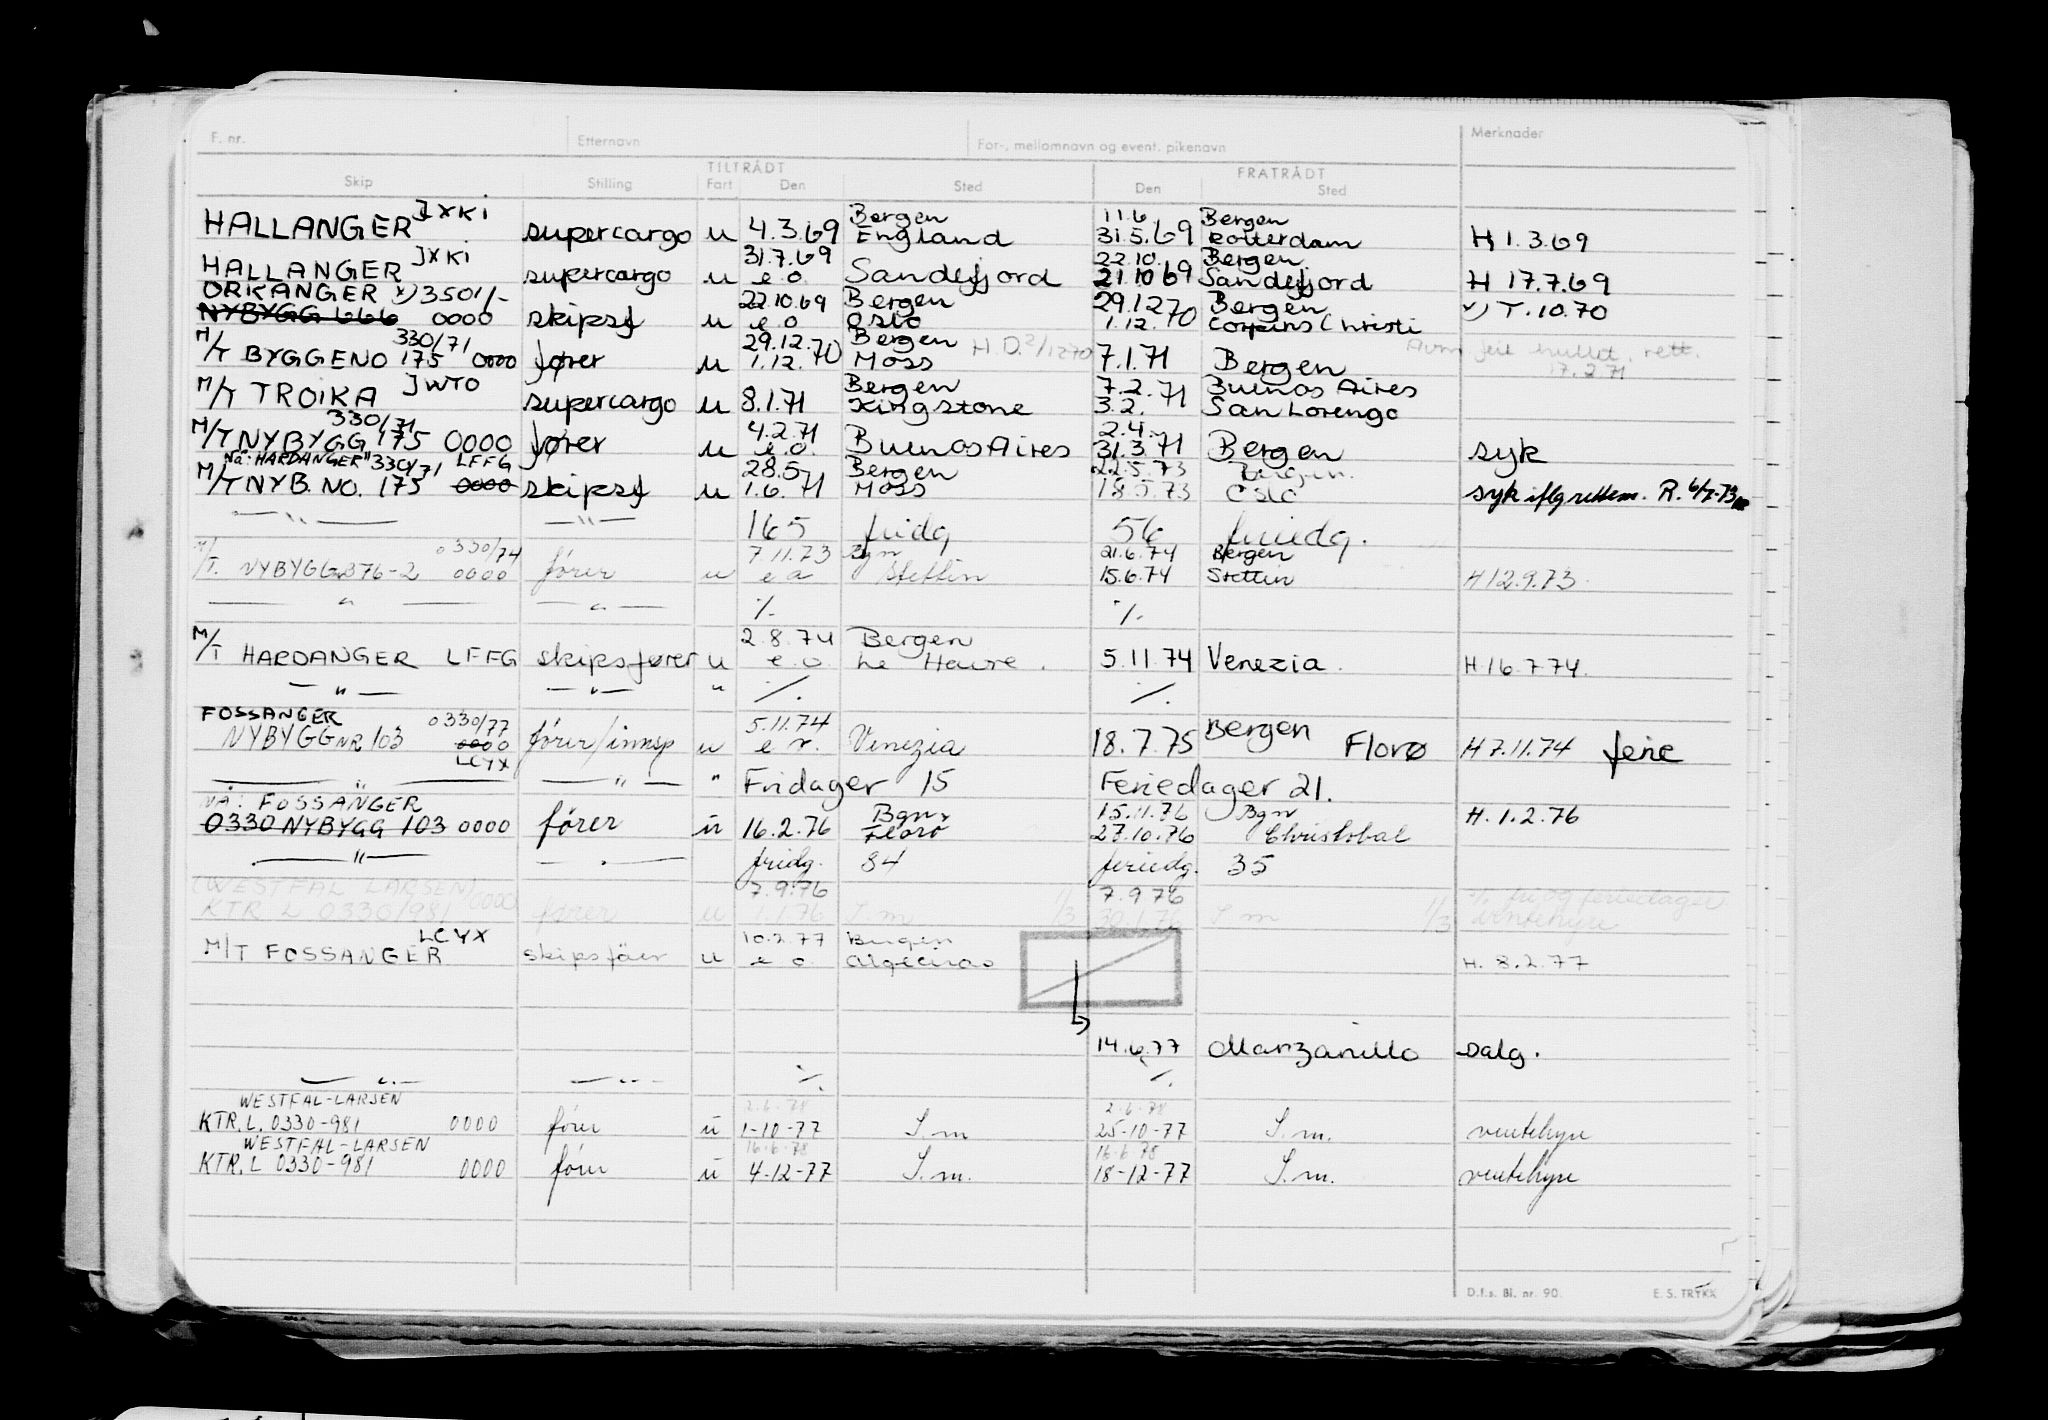 F. nr. Etternavn For-, mellomnavn og event. pikenavn Merknader
TILTRÅDT FRATRÅDT
Skip Stilling Fart Den Sted Den Sted
JXKI Bergen 11.6. Bergen
HALLANGER supercargo u 4.3.69 England 31.5.69 Rotterdam H 1.3.69
JXKI 31.7.69 22.10. Bergen
HALLANGER supercargo u e.o. Sandefjord 21.10 69 Sandefjord H 17.7.69
ORKANGER x) 3501/- 22.10.69 Bergen 29.12 70 Bergen
NYBYGG 666 0000 skipsf u e.o Oslo 1.12. Corpus Christi x) T. 10.70
330/71 29.12. Bergen
M/T BYGGENO 175 0000 fører u 1.12.70 Moss H.D. 2/1270 7.1.71 Bergen feil hullet. rett. 17.2.71
M/T TROIKA JWTO supercargo u 8.1.71 Bergen Kingstone 7.2. 3.2. 71 Buenos Aires San Lorengo
330/71 4.2.71 2.4.
M/T NYBYGG 175 0000 fører u e.o. Buenos Aires 31.3.71 Bergen syk
Nå: "HARDANGER" 330/71 LFFG 28.5 Bergen 22.5.73 Bergen
M/T NYB. NO. 175 0000 skipsf u 1.6. 71 Moss 18.5.73 Oslo syk iflg rettem. R. 6/7-73
—"— —"— 165 fridg 56 feriedg.
0330/74 7.11.73 Bgn 21.6.74 Bergen
M/T. NYBYGG B76-2 0000 fører u e o Stettin 15.6.74 Stettin H 12.9.73.
—"— —"— %. %.
2.8.74 Bergen
M/T HARDANGER LFFG skipsfører u e.o. Le Havre. 5.11.74 Venezia. H. 16.7.74.
—"— —"— " %. %.
FOSSANGER 0330/77 5.11.74 Bergen
NYBYGG NR 103 0000 LCYX fører/innsp u e.o. Venezia 18.7.75 Florø H 7.11.74 ferie
—"— —"— " Fridager 15 Feriedager 21.
NÅ: FOSSANGER Bgn 15.11.76 Bgn
0330 NYBYGG 103 0000 fører u 16.2.76 Florø 27.10.76 Christobal H. 1.2.76
—"— —"— fridg. 84 feriedg. 35
(WESTFAL LARSEN) 0000 7.9.76 7.9 76 fri og feriedager
KTR L 0330/981 fører u 1.1.76 S.m 1/3 30.1.76 S m 1/3 ventehyre
LCYX 10.2.77 Bergen
M/T FOSSANGER skipsföer u e o. Algeciras H. 8.2.77
14.6.77 Manzanillo Salg.
—"— —"— %. %.
WESTFAL-LARSEN 2.6.78 2.6.78
KTR. L. 0330-981 0000 fører u 1-10-77 S.m 25-10-77 S.m. ventehyre
WESTFAL-LARSEN 16.6.78 16.6 78
KTR. L 0330-981 0000 fører u 4-12-77 S.m. 18-12-77 S.m. ventehyre
D.f.s. Bl. nr. 90. E. S. TRYKK